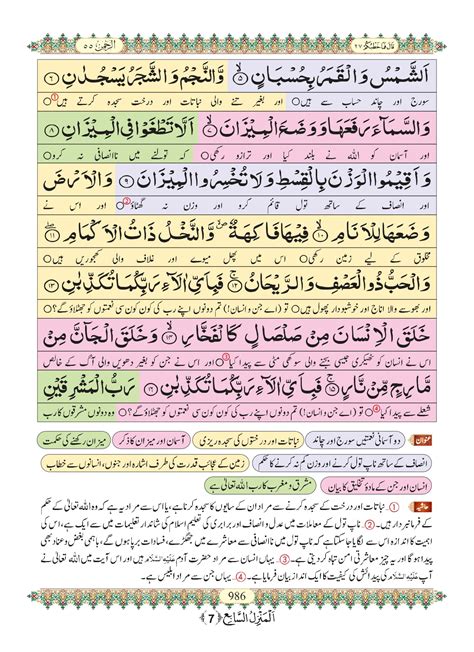 قَالَ فَمَا خَطْبُكُمْ ٢٧
اَلرَّحْمٰن ٥٥
اَلشَّمْسُ وَالْقَمَرُ بِحُسْبَانٍ ﴿٥﴾ وَّالنَّجْمُ وَالشَّجَرُ يَسْجُدٰنِ ﴿٦﴾
سورج اور چاند حساب سے ہیں اور بغیر تنے والی نباتات اور درخت سجدہ کرتے ہیں ①
وَالسَّمَآءَ رَفَعَهَا وَوَضَعَ الْمِيْزَانَ ﴿٧﴾ اَلَّا تَطْغَوْا فِي الْمِيْزَانِ ﴿٨﴾
اور آسمان کو اللہ نے بلند کیا اور ترازو رکھی کہ تولنے میں ناانصافی نہ کرو
وَاَقِيْمُوا الْوَزْنَ بِالْقِسْطِ وَلَا تُخْسِرُوا الْمِيْزَانَ ﴿٩﴾ وَالْاَرْضَ
اور انصاف کے ساتھ تول قائم کرو اور وزن نہ گھٹاؤ ② اور اس نے
وَضَعَهَا لِلْاَنَامِ ﴿١٠﴾ فِيْهَا فَاكِهَةٌ وَّالنَّخْلُ ذَاتُ الْاَكْمَامِ ﴿١١﴾
مخلوق کے لیے زمین رکھی اس میں پھل میوے اور غلاف والی کھجوریں ہیں
وَالْحَبُّ ذُو الْعَصْفِ وَالرَّيْحَانُ ﴿١٢﴾ فَبِاَيِّ اٰلَآءِ رَبِّكُمَا تُكَذِّبٰنِ ﴿١٣﴾
اور بھوسے والا اناج اور خوشبودار پھول ہیں تو (اے جن و انسان!) تم دونوں اپنے رب کی کون کون سی نعمتوں کو جھٹلاؤ گے؟
خَلَقَ الْاِنْسَانَ مِنْ صَلْصَالٍ كَالْفَخَّارِ ﴿١٤﴾ وَخَلَقَ الْجَآنَّ مِنْ
اس نے انسان کو ٹھیکری جیسی بجنے والی سوکھی مٹی سے پیدا کیا ③ اور اس نے جن کو بغیر دھویں والی آگ کے خالص
مَّارِجٍ مِّنْ نَّارٍ ﴿١٥﴾ فَبِاَيِّ اٰلَآءِ رَبِّكُمَا تُكَذِّبٰنِ ﴿١٦﴾ رَبُّ الْمَشْرِقَيْنِ
شعلے سے پیدا کیا ④ تو (اے جن و انسان!) تم دونوں اپنے رب کی کون کون سی نعمتوں کو جھٹلاؤ گے؟ وہ دونوں مشرقوں کا رب
عنوان دو آسمانی نعمتیں سورج اور چاند نباتات اور درختوں کی سجدہ ریزی آسمان اور میزان کا ذکر میزان رکھنے کی حکمت
انصاف کے ساتھ ناپ تول کرنے اور وزن کم نہ کرنے کا حکم زمین کے عجائب قدرت کی طرف اشارہ اور جنوں، انسانوں سے خطاب
انسان اور جن کے مادۂ تخلیق کا بیان مشرق و مغرب کا رب اللہ تعالیٰ ہے
حاشیہ ① یہاں نباتات اور درخت کے سجدہ کرنے سے مراد ان کے سایوں کا سجدہ کرنا ہے، یا اس سے مراد یہ ہے کہ وہ اللہ تعالیٰ کے حکم
کے فرمانبردار ہیں۔ ② ناپ تول کے معاملات میں عدل و انصاف اور برابری کی تعلیم اسلام کی شاندار تعلیمات میں سے ایک ہے،
اس کی اہمیت کا اندازہ اس سے لگایا جا سکتا ہے کہ ناپ تول میں ناانصافی سے معاشرے میں جھگڑے، فسادات برپا ہوں گے، باہمی بغض و عناد بھی
پیدا ہوگا اور یہ چیز معاشرتی امن تباہ کر دیتی ہے۔ ③ یہاں انسان سے مراد حضرت آدم عَلَيْهِ السَّلَام ہیں اور اس آیت میں اللہ تعالیٰ نے
آپ عَلَيْهِ السَّلَام کی پیدائش کی کیفیت کا ایک انداز بیان فرمایا ہے۔ ④ یہاں جن سے مراد ابلیس ہے۔
986
اَلْمَنْزِلُ السَّابِع ﴿7﴾